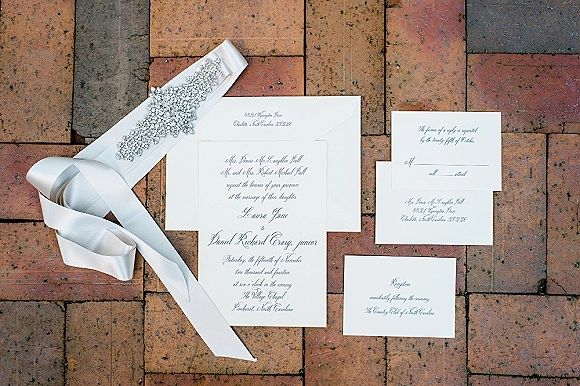 Charlotte, North Carolina
Mrs. Bruce Mc Laughlin Bell
Mr. and Mrs. Robert Michael Bell
request the honour of your presence
at the marriage of their daughter
Laura Jane
to
Daniel Richard Craig, junior
Saturday, the fifteenth of November
two thousand and fourteen
at six o'clock in the evening
The Village Chapel
Pinehurst, North Carolina
The favour of a reply is requested
by the twenty fifth of October
M
will attend
Mrs. Bruce Mc Laughlin Bell
Charlotte, North Carolina
Reception
immediately following the ceremony
The Country Club of North Carolina